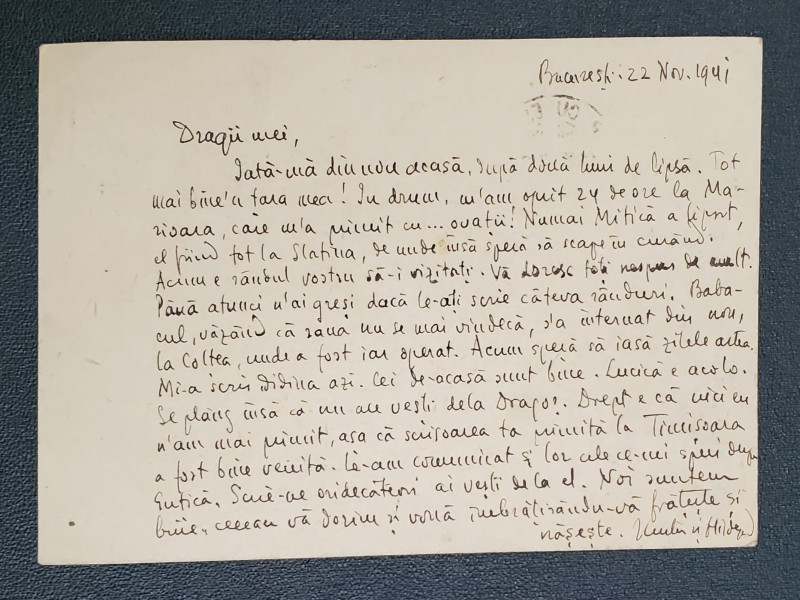 București. 22 Nov. 1941
Dragii mei,
Iată-mă din nou acasă, după două luni de lipsă. Tot
mai bine'n țara mea! In drum, m'am oprit 24 de ore la Ma-
rioara, care m'a primit cu... ovații! Numai Mitică a lipsit,
el fiind tot la Slatina, de unde însă speră să scape în curând.
Acum e rândul vostru să-i vizitați. Vă doresc toți nespus de mult.
Până atunci n'ai greși dacă le-ați scrie câteva rânduri. Baba-
cul, văzând că rana nu se mai vindecă, s'a internat din nou,
la Colțea, unde a fost iar operat. Acum speră să iasă zilele astea.
Mi-a scris Didina azi. Cei de-acasă sunt bine. Lucică e acolo.
Se plâng însă că nu au vești dela Dragoș. Drept e că nici eu
n'am mai primit, așa că scrisoarea ta primită la Timisoara
a fost bine venită. Le-am comunicat și lor cele ce-mi spui despre
Scrie-ne oridecâteori ai vești de la el. Noi suntem
bine, ceeace vă dorim și vouă îmbrățișându-vă frățește și
nășește.